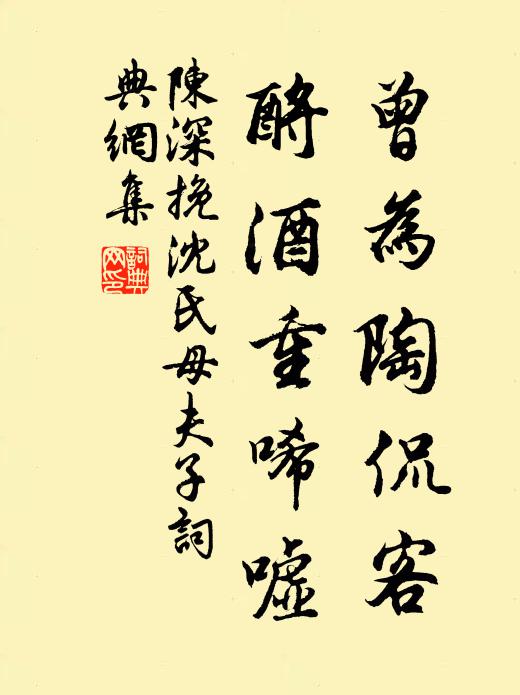 曾為陶侃客
酹酒重唏噓
陳深挽沈氏母夫子詞
典網集
詞典
网印